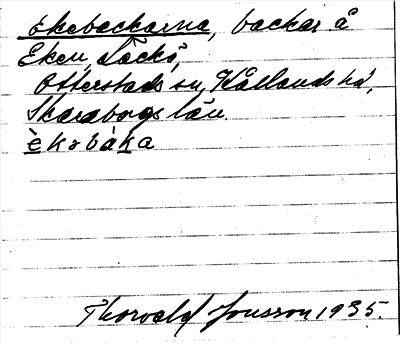 Ekebackarna, backar å
Eken, Läckö,
Otterstads sn, Kållands hd,
Skaraborgs län.
èkəbàka
Thorvald Jonsson 1935.